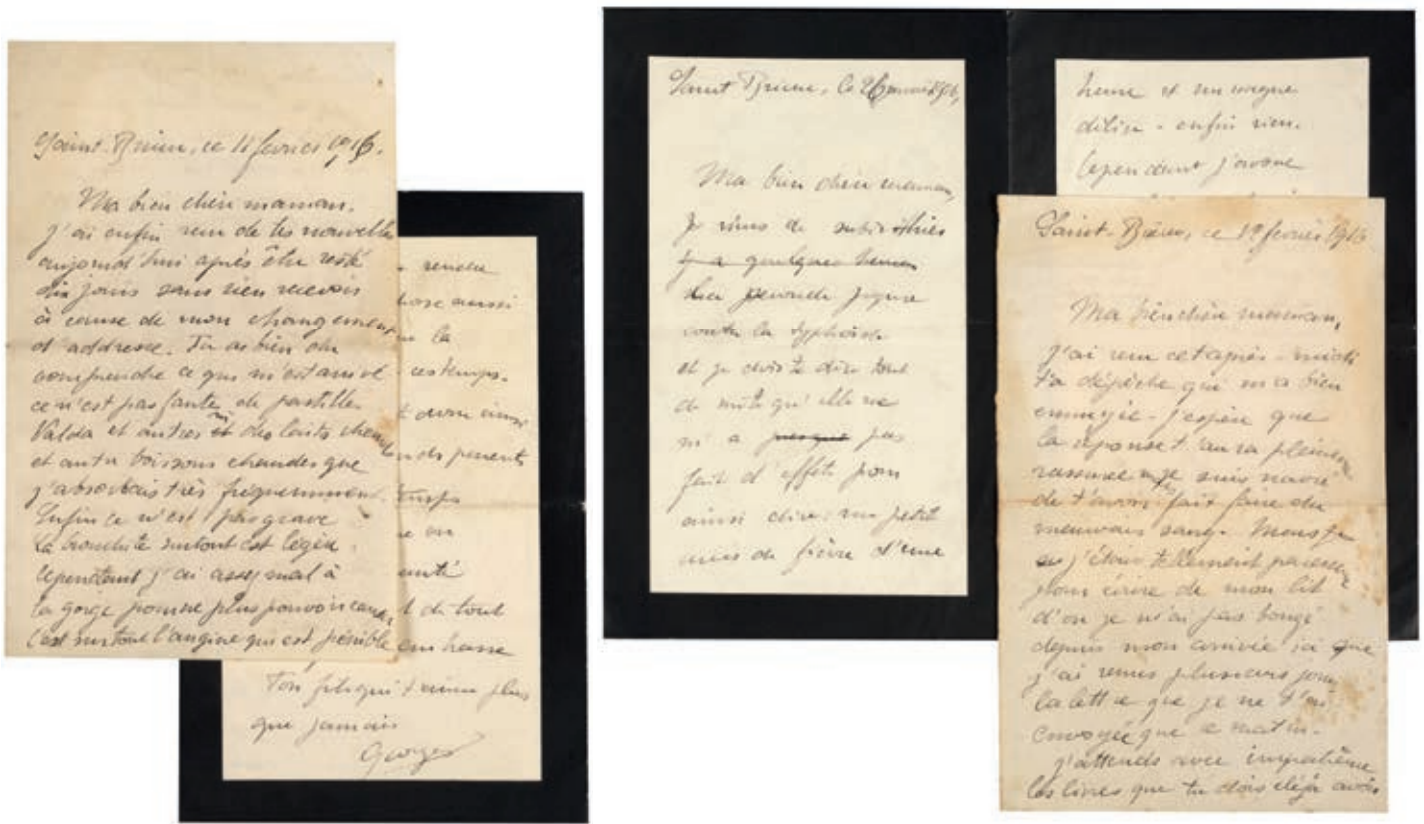 Saint-Brieuc, ce 11 février 1916.
Ma bien chère maman,
J'ai enfin reçu de tes nouvelles
aujourd'hui après être resté
dix jours sans rien recevoir
à cause de mon changement
d'addresse. Tu as bien dû
comprendre ce qui m'est arrivé
ce n'est pas faute de pastilles
Valda et autres et des laits chauds
et autres boissons chaudes que
j'absorbais très fréquemment.
Enfin ce n'est pas grave
la bronchite surtout est légère.
Cependant j'ai assez mal à
la gorge pour ne plus pouvoir
c'est surtout l'angine qui est pénible
rendre
aussi
la
ces temps.
parents
temps
on
du tout
Ton fils qui t'aime plus
que jamais
Georges
Saint Brieuc, le 26 janvier 1916,
Ma bien chère maman,
Je viens de subir
il y a quelques heures
la seconde piqûre
contre la typhoïde
et je dois te dire tout
de suite qu'elle ne
m'a presque pas
fait d'effet pour
ainsi dire : un petit
accès de fièvre d'une
heure et un vague
délire - enfin rien.
Cependant j'avoue
Saint-Brieuc, ce 19 février 1916
Ma bien chère maman,
J'ai reçu cet après-midi
ta dépêche qui m'a bien
ennuyé - J'espère que
la réponse t'aura pleinement
rassurée je suis navré
de t'avoir fait faire du
mauvais sang. Mais
j'étais tellement paresseux
pour écrire de mon lit
d'où je n'ai pas bougé
depuis mon arrivée ici que
j'ai remis plusieurs jours
la lettre que je ne t'ai
envoyée que ce matin.
J'attends avec impatience
les livres que tu dois déjà avoir